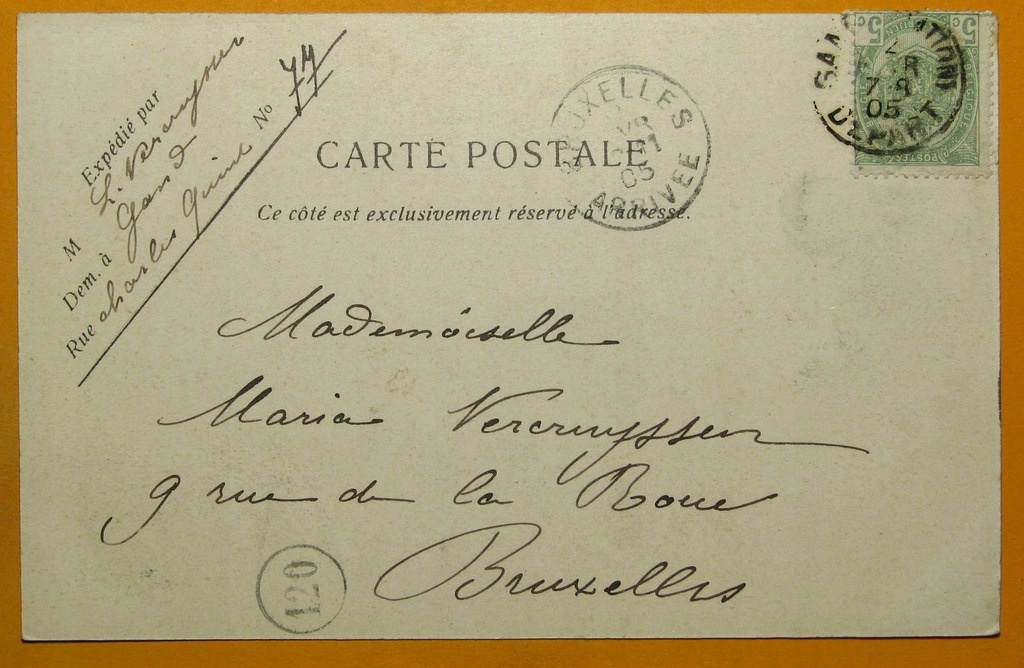 Expédié par
M L. Vercruyssen
Dem. à Gand
Rue charles Quint No 77
CARTE POSTALE
Ce côté est exclusivement réservé à l'adresse.
BRUXELLES
05
ARRIVEE
5c 5c
DEPART
05
POSTES
Mademoiselle
Maria Vercruyssen
9 rue de la Roue
Bruxelles
120